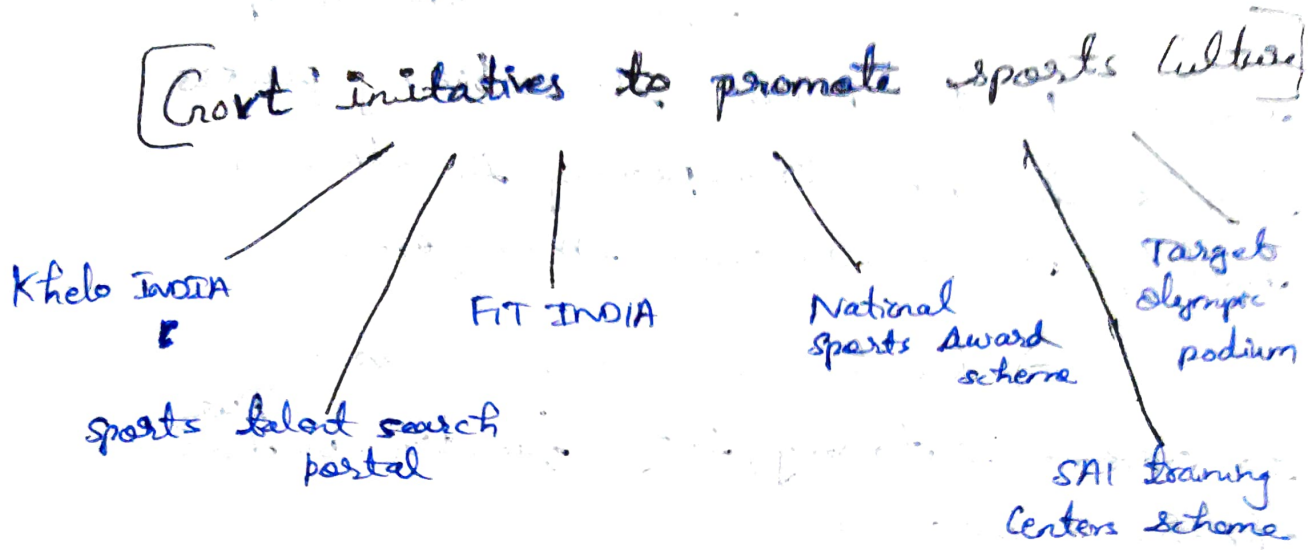 [Govt initatives to promote sports Culture]
Khelo INDIA
sports talent search
portal
FIT INDIA
National
sports Award
scheme
SAI training
Centers scheme
Target
olympic
podium